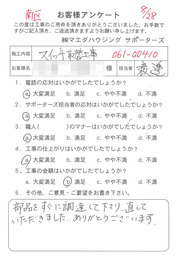 南区
8/28
お客様アンケート
この度は工事のご用命を頂きありがとうございました。お手数で
すがご記入頂き、ご返送頂きますようお願い申し上げます。
㈱マエダハウジング サポーターズ
工事内容 スイッチ取替工事 061-00410
お名前 様 担当者 渡邉
1. 電話の応対はいかがでしたでしょうか?
a. 大変満足 b. 満足 c. やや不満 d. 不満
2. サポーターズ担当者の応対はいかがでしたでしょうか?
a. 大変満足 b. 満足 c. やや不満 d. 不満
3. 職人( )のマナーはいかがでしたでしょうか?
a. 大変満足 b. 満足 c. やや不満 d. 不満
4. 工事の仕上がりはいかがでしたでしょうか?
a. 大変満足 b. 満足 c. やや不満 d. 不満
5. 工事の金額はいかがでしたでしょうか?
a. 大変満足 b. 満足 c. やや不満 d. 不満
6. その他、ご意見・ご要望をお書き下さい。
部品をすぐに調達して下さり、直して
いただきました。ありがとうございます。